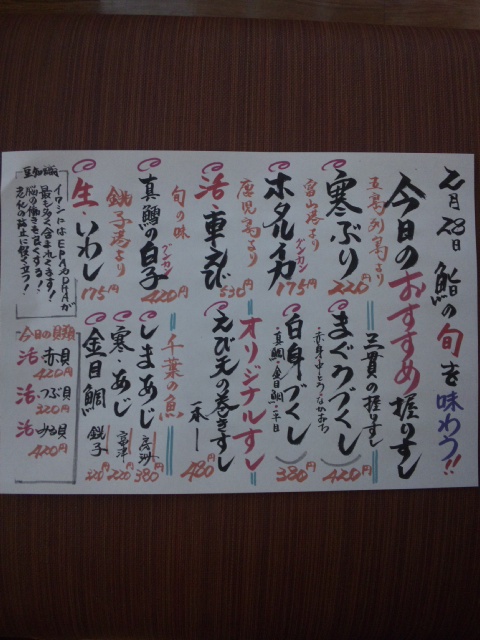 2月28日 鮨の旬を味わう!!
今日のおすすめ握りすし
五島列島より
寒ぶり 220円
富山湾より
ホタルイカ グンカン 175円
鹿児島より
活・車えび 630円
旬の味
真鱈の白子 グンカン 420円
銚子港より
生・いわし 175円
三貫の握りすし
まぐろづくし 420円
赤身・中とろ・なかおち
白身づくし 380円
真鯛・金目鯛・平目
オリジナルすし
えび天の巻きすし
一本 480円
千葉の魚
しまあじ 380円
寒・あじ 富津 220円
金目鯛 銚子 320円
豆知識
イワシにはEPAやDHAが
最も多く含まれてます!
脳の働きを良くする!
老化の防止に役立つ!
今日の貝類
活・赤貝
420円
活・つぶ貝
220円
活・みる貝
420円